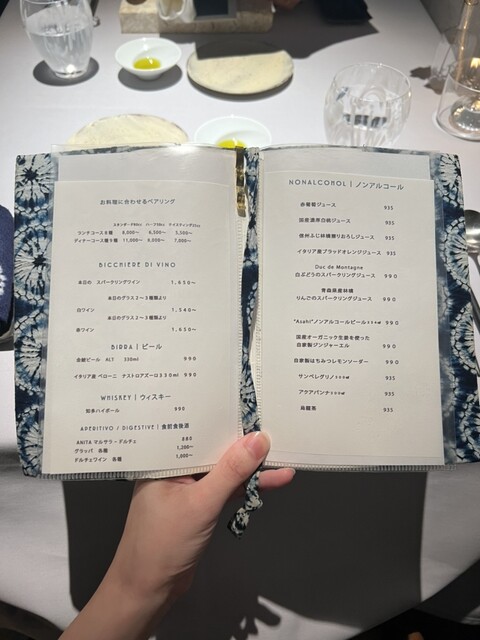 お料理に合わせるペアリング
スタンダード90cc ハーフ50cc テイスティング25cc
ランチコース6種 8,000〜 6,500〜 3,500〜
ディナーコース7種 11,000〜 9,000〜 7,000〜
BICCHIERE DI VINO
本日の スパークリングワイン 1,650〜
本日のグラス2〜3種類より
白ワイン 1,540〜
本日のグラス2〜3種類より
赤ワイン 1,650〜
BIRRA | ビール
ALT 330ml 990
イタリア産 ペローニ ナストロアズーロ330ml 990
WHISKEY | ウィスキー
知多ハイボール 990
APERITIVO / DIGESTIVE | 食前食後酒
ANITA マルサラ・ドルチェ 880
グラッパ 各種 1,200〜
ドルチェワイン 各種 1,000〜
NONALCOROL | ノンアルコール
赤葡萄ジュース 935
国産濃厚白桃ジュース 935
信州ふじ林檎摺りおろしジュース 935
イタリア産ブラッドオレンジジュース 935
Duc de Montagne
白ぶどうのスパークリングジュース 990
青森県産林檎
りんごのスパークリングジュース 990
"Asahi"ノンアルコールビール 990
国産オーガニック生姜を使った
自家製ジンジャーエル 990
自家製はちみつレモンソーダー 990
サンペレグリノ 935
アクアパンナ 935
烏龍茶 935